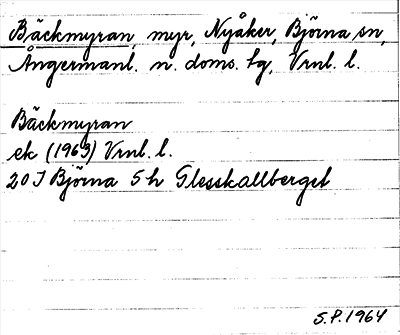 Bäckmyran, myr, Nyåker, Björna sn,
Ångermanl. n. doms. tg, Vrnl. l.
Bäckmyran
ek (1963) Vrnl. l.
20 I Björna 5 h Glesskallberget
S.P. 1964